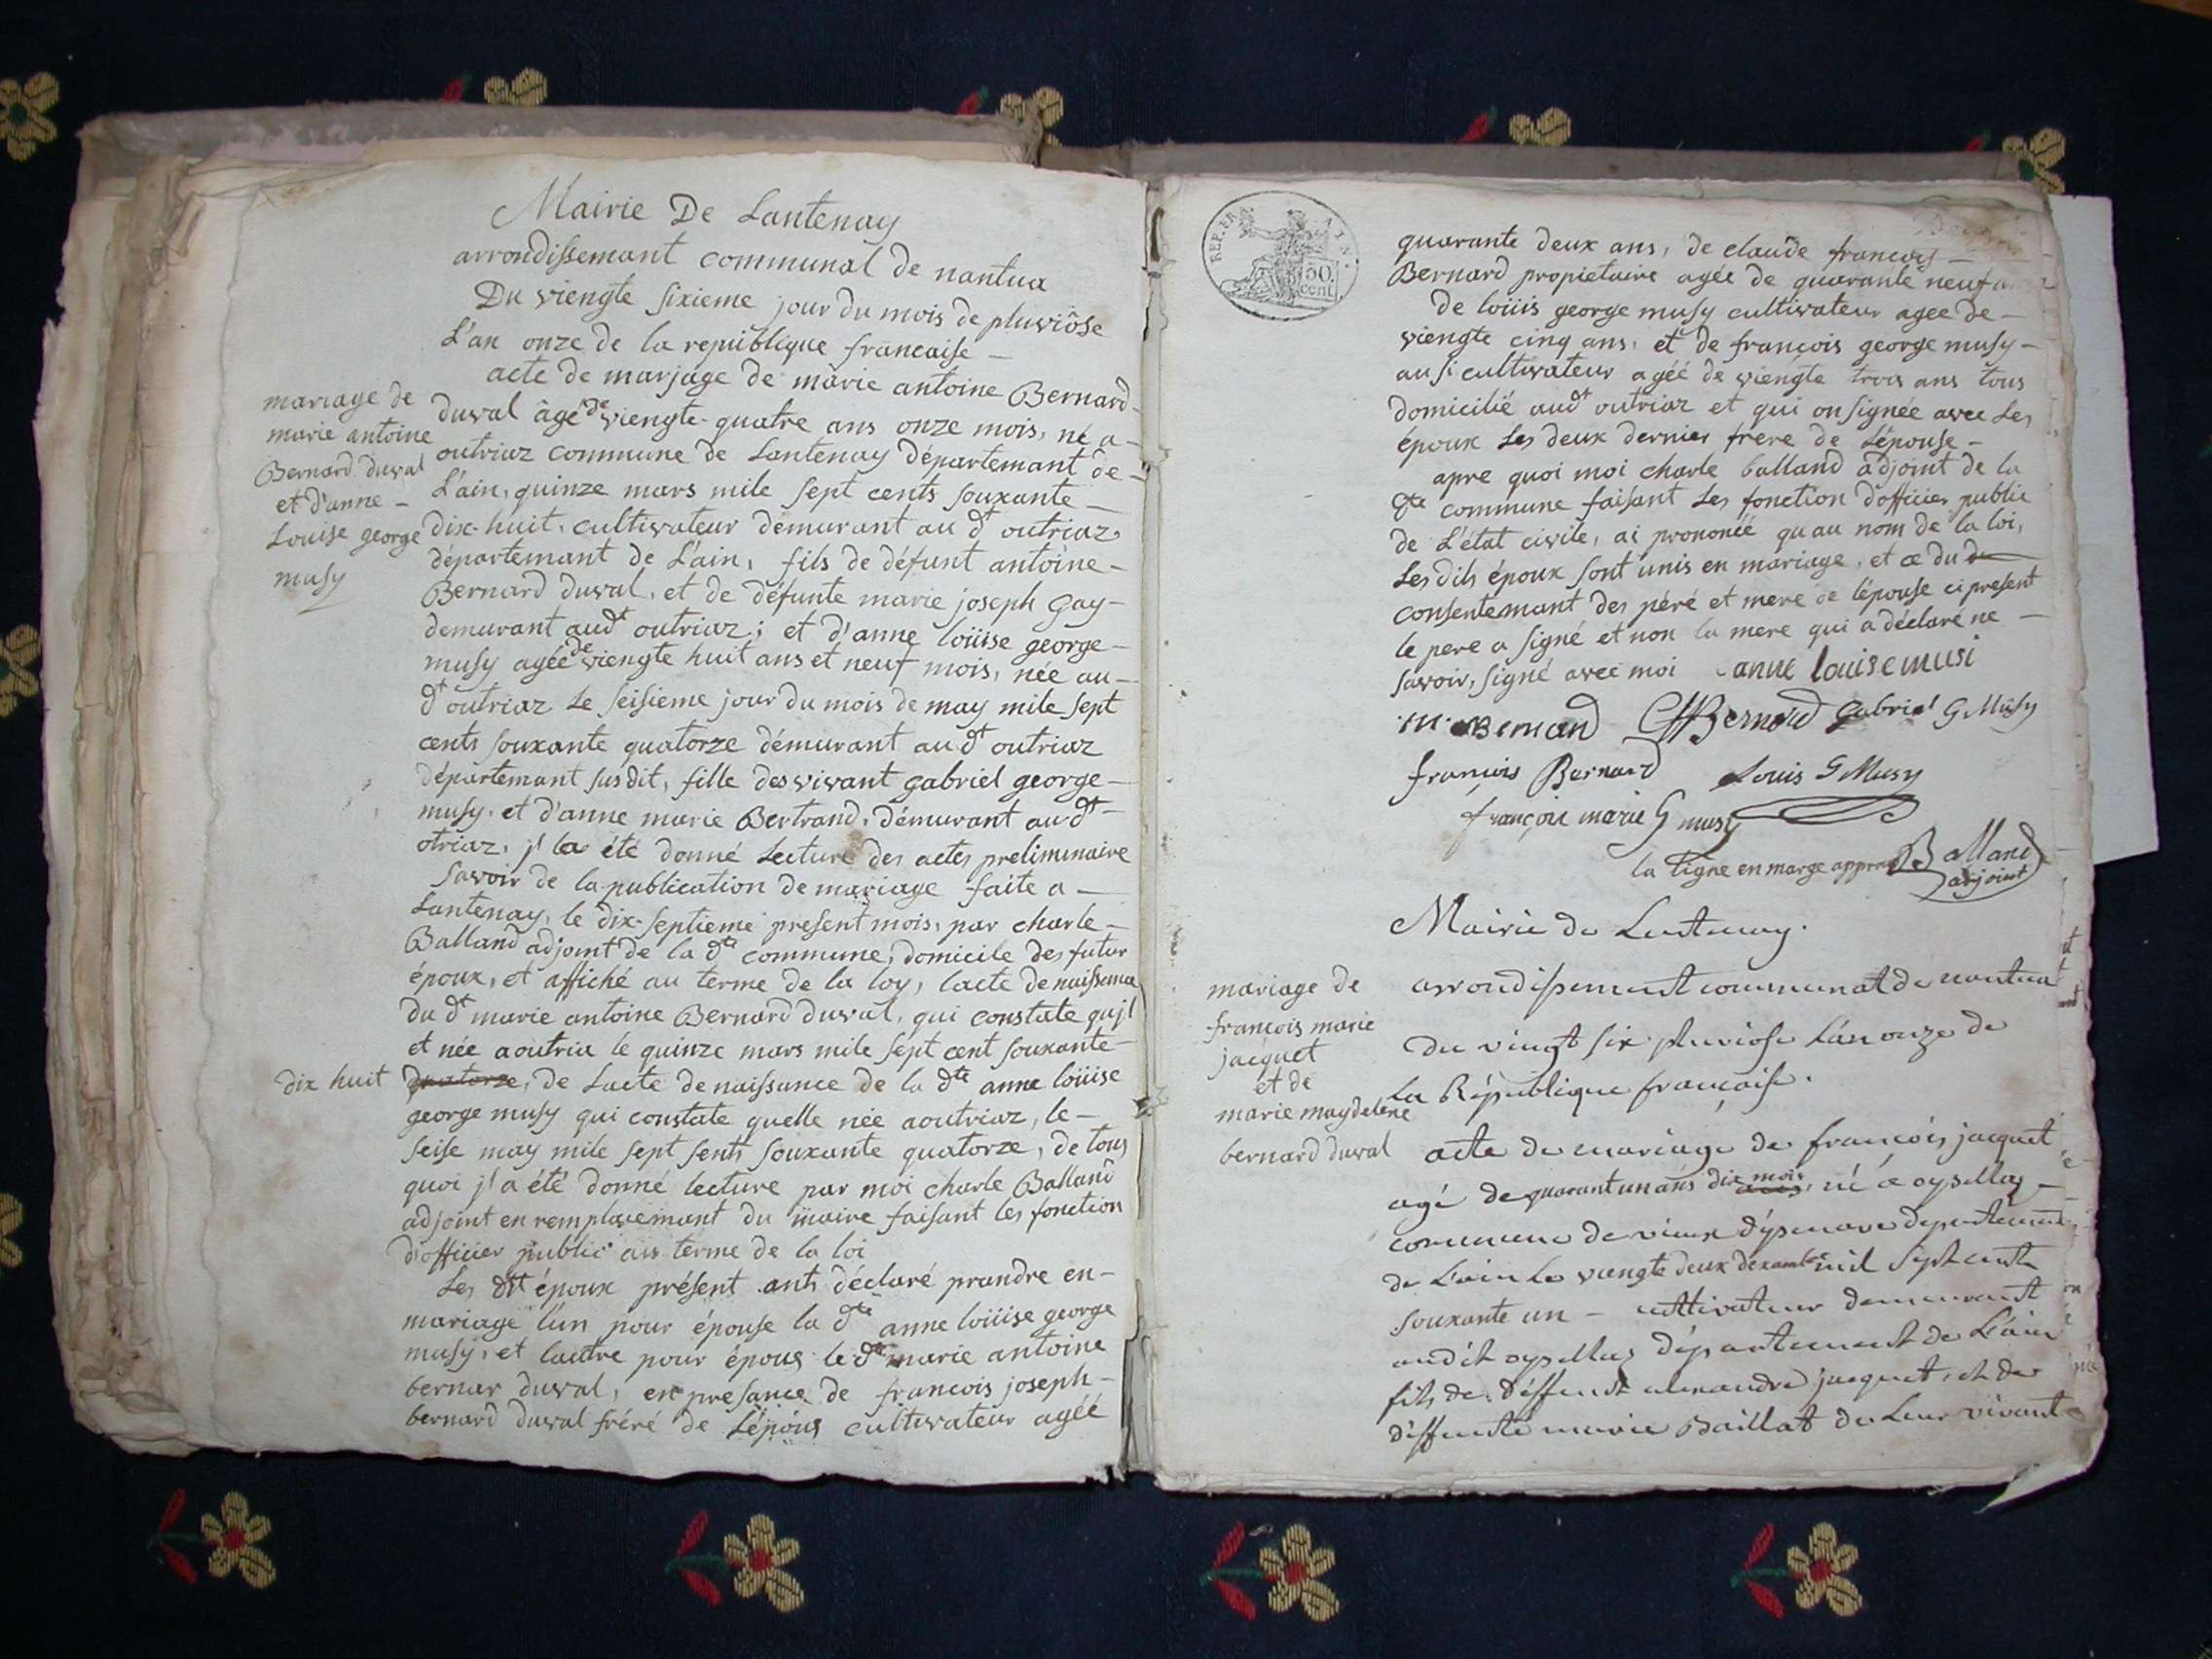 Mairie De Lantenay
arrondissemant communal de nantua
Du viengte sixieme jour du mois de pluviôse
L'an onze de la republique francaise
acte de marjage de marie antoine Bernard
mariage de
marie antoine
Bernard duval
et d'anne
Louise george
musy
duval âgé de viengte quatre ans onze mois, né a
outriaz commune de Lantenay départemant de
L'ain, quinze mars mile sept cents souxante
dix-huit, cultivateur démurant au dt outriaz
départemant de L'ain, fils de défunt antoine
Bernard duval, et de défunte marie joseph Gay
demurant audt outriaz; et d'anne loüise george
musy agée de viengte huit ans et neuf mois, née au
dt outriaz Le seisieme jour du mois de may mile sept
cents souxante quatorze démurant au dt outriaz
départemant susdit, fille des vivant gabriel george
musy, et d'anne marie Bertrand, démurant au dt
otriaz, jl la été donné Lecture des actes preliminaire
savoir de la publication de mariage faite a
Lantenay, le dix-septieme present mois, par charle
Balland adjoint de la dte commune, domicile des futur
époux, et affiché au terme de la loy, lacte denaissance
du dt marie antoine Bernard duval, qui constate qujl
et née aoutria le quinze mars mile sept cent souxante
dix huit quatorze, de Lacte denaissance de la dte anne loüise
george musy qui constate quelle née aoutriaz, le
seise may mile sept sents souxante quatorze, de tous
quoi jl a été donné lecture par moi charle Balland
adjoint en remplacemant du maire faisant les fonction
d'officier public au terme de la loi
Les dtt époux présent ants déclaré prandre en
mariage l'un pour épouse la dte anne loüise george
musy, et lautre pour épous le dt marie antoine
bernar duval, en presance de francois joseph
bernard duval fréré de Lépous cultivateur agéé
REP. FRA
50
cent
quarante deux ans, de claude francois
Bernard propietaire agée de quarante neuf
de loüis george musy cultivateur agee de
viengte cinq ans, et de françois george musy
ausi cultivateur agéé de viengte trois ans tous
domicilié audt outriaz et qui on signée avec Les
époux Les deux dernier frere de Lépouse
apre quoi moi charle balland adjoint de la
dte commune faisant Les fonction d'officier public
de L'état civile, ai prononcé quau nom de la loi,
Les dits époux sont unis en mariage, et ce du de
consentemant des péré et mere de lépouse ci present
le pere a signé et non la mere qui a déclaré ne
savoir, signé avec moi anne louise musi
m. Bernand Bernard gabriel G Musy
françois Bernard Louis G Musy
françoie marie G musy
la ligne en marge Balland
adjoint
Mairie de Lantenay.
arrondissement communal de nantua
du vingt six pluviose L'an onze de
La République française.
mariage de
francois marie
jacquet
et de
marie magdelene
bernard duval
acte de mariage de francois jacquet
agé de quarant un ans dix mois, né a oysellaz
commune de vieux d'ysenave departement
de L'ain Le viengte deux mil sept cents
souxante un - cultivateur demeurant
audit oysellaz département de L'ain
fils de deffunt jacquet, et de
deffunte marie Baillat de Leur vivant